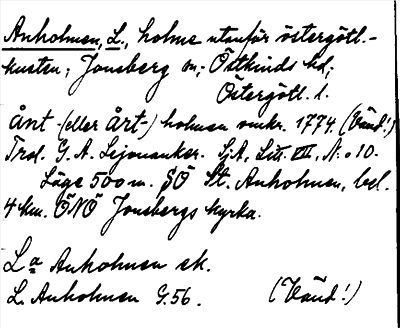 Anholmen, L., holme utanför östergötl.-
kusten; Jonsberg sn; Östkinds hd;
Östergötl. l.
Ånt- (eller Årt-) holmen omkr. 1774. (Vänd!)
Trol. G. A. Lejonanker. SjA, Litt. VIII, N:o 10.
Läge 500 m. SÖ St. Anholmen, bel.
4 km. ÖNÖ Jonsbergs kyrka.
La Anholmen ek.
L. Anholmen G.56. (Vänd!)